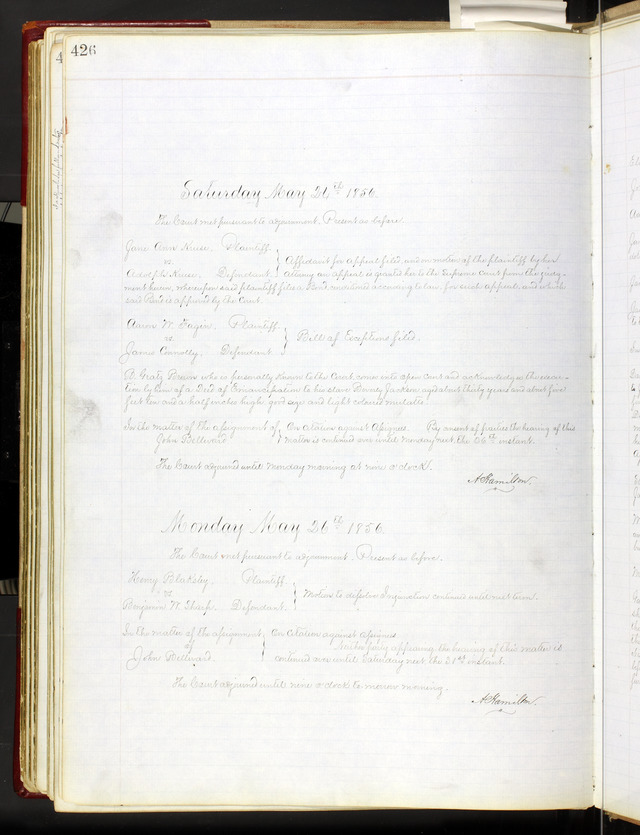 426
Saturday May 24th 1856.
The Court met pursuant to adjournment. Present as before.
Jane Ann Kruse. Plaintiff
vs
Adolph Kruse. Defendant
Affidavit for appeal filed, and on motion of the plaintiff by her
attorney an appeal is granted her to the Supreme Court from the judg-
ment herein, whereupon said plaintiff files a Bond conditioned according to law for such appeal, and which
said Bond is approved by the Court.
Aaron W. Fagin. Plaintiff
vs
James Connolly. Defendant
Bill of Exceptions filed.
B. Gratz Brown who is personally known to the Court, comes into open Court and acknowledges the execu-
tion by him of a Deed of Emancipation to his slave Jackson, aged about thirty years and about five
feet ten and a half inches high, good size and light colored mulatto.
In the matter of the assignment of
John
On citation against Assignee. By consent of parties the hearing of this
matter is continued over until Monday next, the 26th instant.
The Court adjourned until Monday morning at nine o'clock.
A Hamilton.
Monday May 26th 1856.
The Court met pursuant to adjournment. Present as before.
Henry Blaksley. Plaintiff
vs
Benjamin W. Defendant.
Motion to dissolve Injunction continued until next term.
In the matter of the assignment
of
John
On citation against assignee
Neither party appearing the hearing of this matter is
continued over until Saturday next the 31st instant.
The Court adjourned until nine o'clock to morrow morning.
A Hamilton.